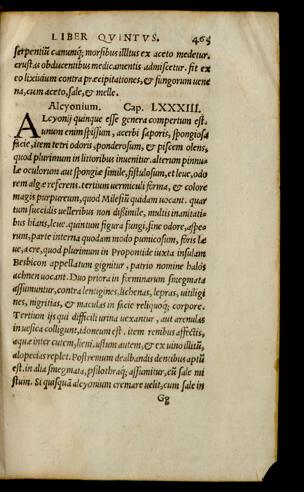 LIBER QVINTVS. 465
serpentiũ canumq́; morsibus illitus ex aceto medetur.
crustas obducentibus medicamentis admiscetur. fit ex
eo lixiuium contra præcipitationes, & fungorum uene
na, cum aceto, sale, & melle.
Alcyonium. Cap. LXXXIII.
ALcyonij quinque esse genera compertum est.
unum enim spissum, acerbi saporis, spongiosa
facie, item tetri odoris, ponderosum, & piscem olens,
quod plurimum in littoribus inuenitur. alterum pinnu-
læ oculorum aut spongiæ simile, fistulosum, et leue, odo
rem algæ referens. tertium uermiculi forma, & colore
magis purpureum, quod Milesiũ quidam uocant. quar
tum succidis uelleribus non dißimile, multis inanitati=
bus hians, leue. quintum figura fungi, sine odore, aspe=
rum, parte interna quodam modo pumicosum, foris læ
ue, acre, quod plurimum in Propontide iuxta insulam
Besbicon appellatum gignitur, patrio nomine halos
achnen uocant. Duo priora in fœminarum smegmata
assumuntur, contra lentigines, lichenas, lepras, uitiligi
nes, nigritias, & maculas in facie reliquoq́; corpore.
Tertium ijs qui difficili urina uexantur, aut arenulas
in uesica colligunt, idoneum est, item renibus affectis,
aqua inter cutem, lieni. ustum autem, & ex uino illitũ,
alopecias replet. Postremum dealbandis dentibus aptũ
est. in alia smegmata, psilothraq́; assumitur, cũ sale mi
stum. Si quisquã alcyonium cremare uelit, cum sale in
Gg